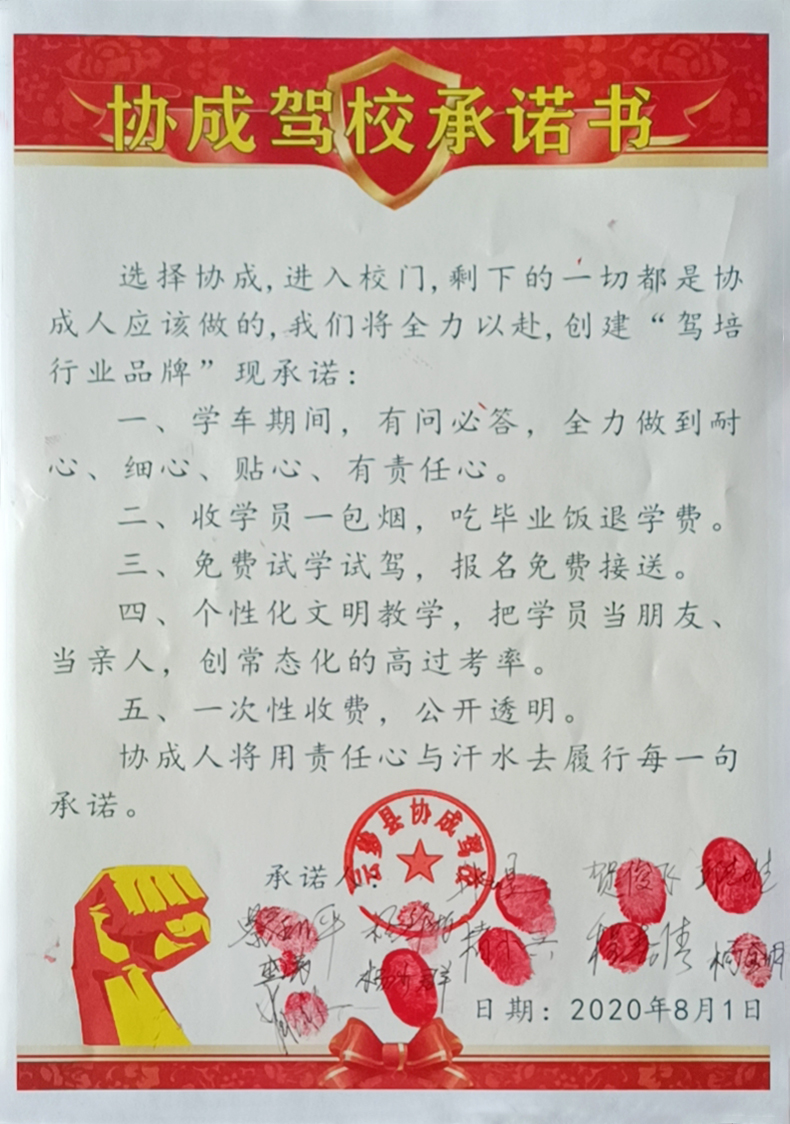 协成驾校承诺书
选择协成,进入校门,剩下的一切都是协
成人应该做的,我们将全力以赴,创建“驾培
行业品牌”现承诺:
一、学车期间，有问必答，全力做到耐
心、细心、贴心、有责任心。
二、收学员一包烟，吃毕业饭退学费。
三、免费试学试驾，报名免费接送。
四、个性化文明教学，把学员当朋友、
当亲人，创常态化的高过考率。
五、一次性收费，公开透明。
协成人将用责任心与汗水去履行每一句
承诺。
县协成驾校
承诺人:
贺俊飞
日期: 2020年8月1日